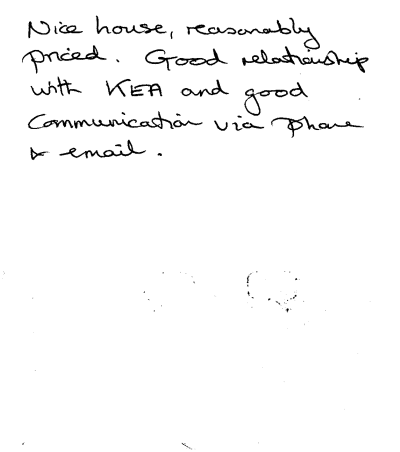 Nice house, reasonably
priced. Good relationship
with KEA and good
Communication via phone
& email.